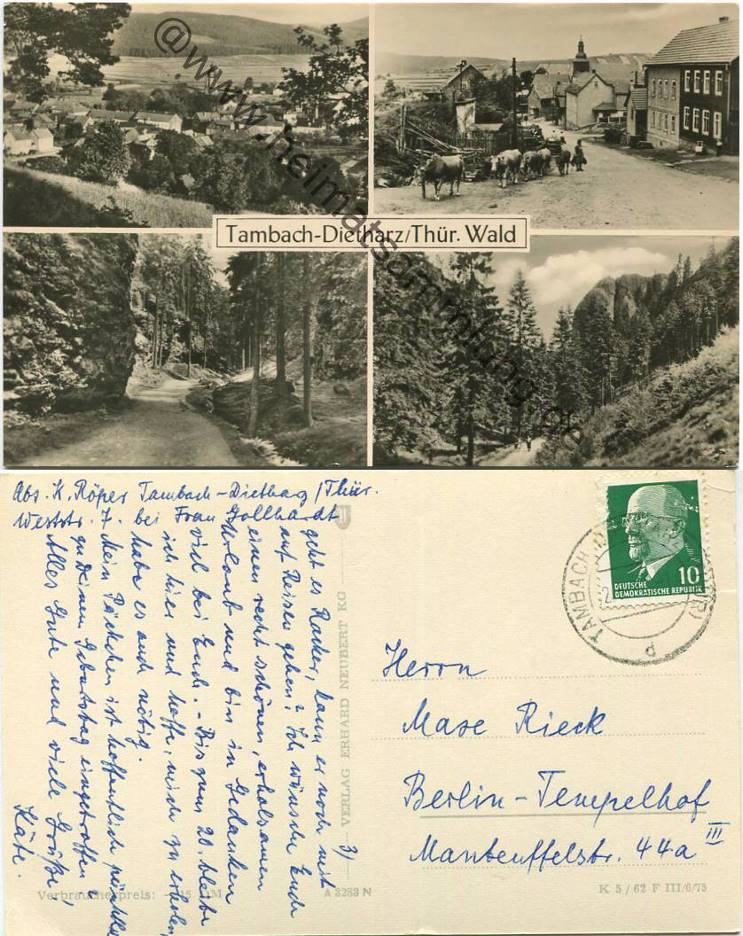 @www.heimatsammlung.de
Tambach-Dietharz/Thür. Wald
Abs. K. Röper Tambach-Dietharz/Thür.
Weststr. 7. bei Frau Gollhardt
3)
geht es Rader, kann er noch mit
auf Reisen gehen? Ich wünsche Euch
einen recht schönen, erholsamen
Urlaub und bin in Gedanken
viel bei Euch. - Bis zum 20. bleibe
ich hier und hoffe, mich zu erholen,
habe es auch nötig.
Mein Päckchen ist hoffentlich pünktlich
zu Deinem Geburtstag eingetroffen.
Alles Gute und viele Grüße,
Käte.
VERLAG ERHARD NEUBERT KG
DEUTSCHE
DEMOKRATISCHE REPUBLIK
10
TAMBACH-
Herrn
Maxe Rieck
Berlin-Tempelhof
Manteuffelstr. 44a III
Verbraucherpreis:
A 3283 N
K 5/62 F III/6/73